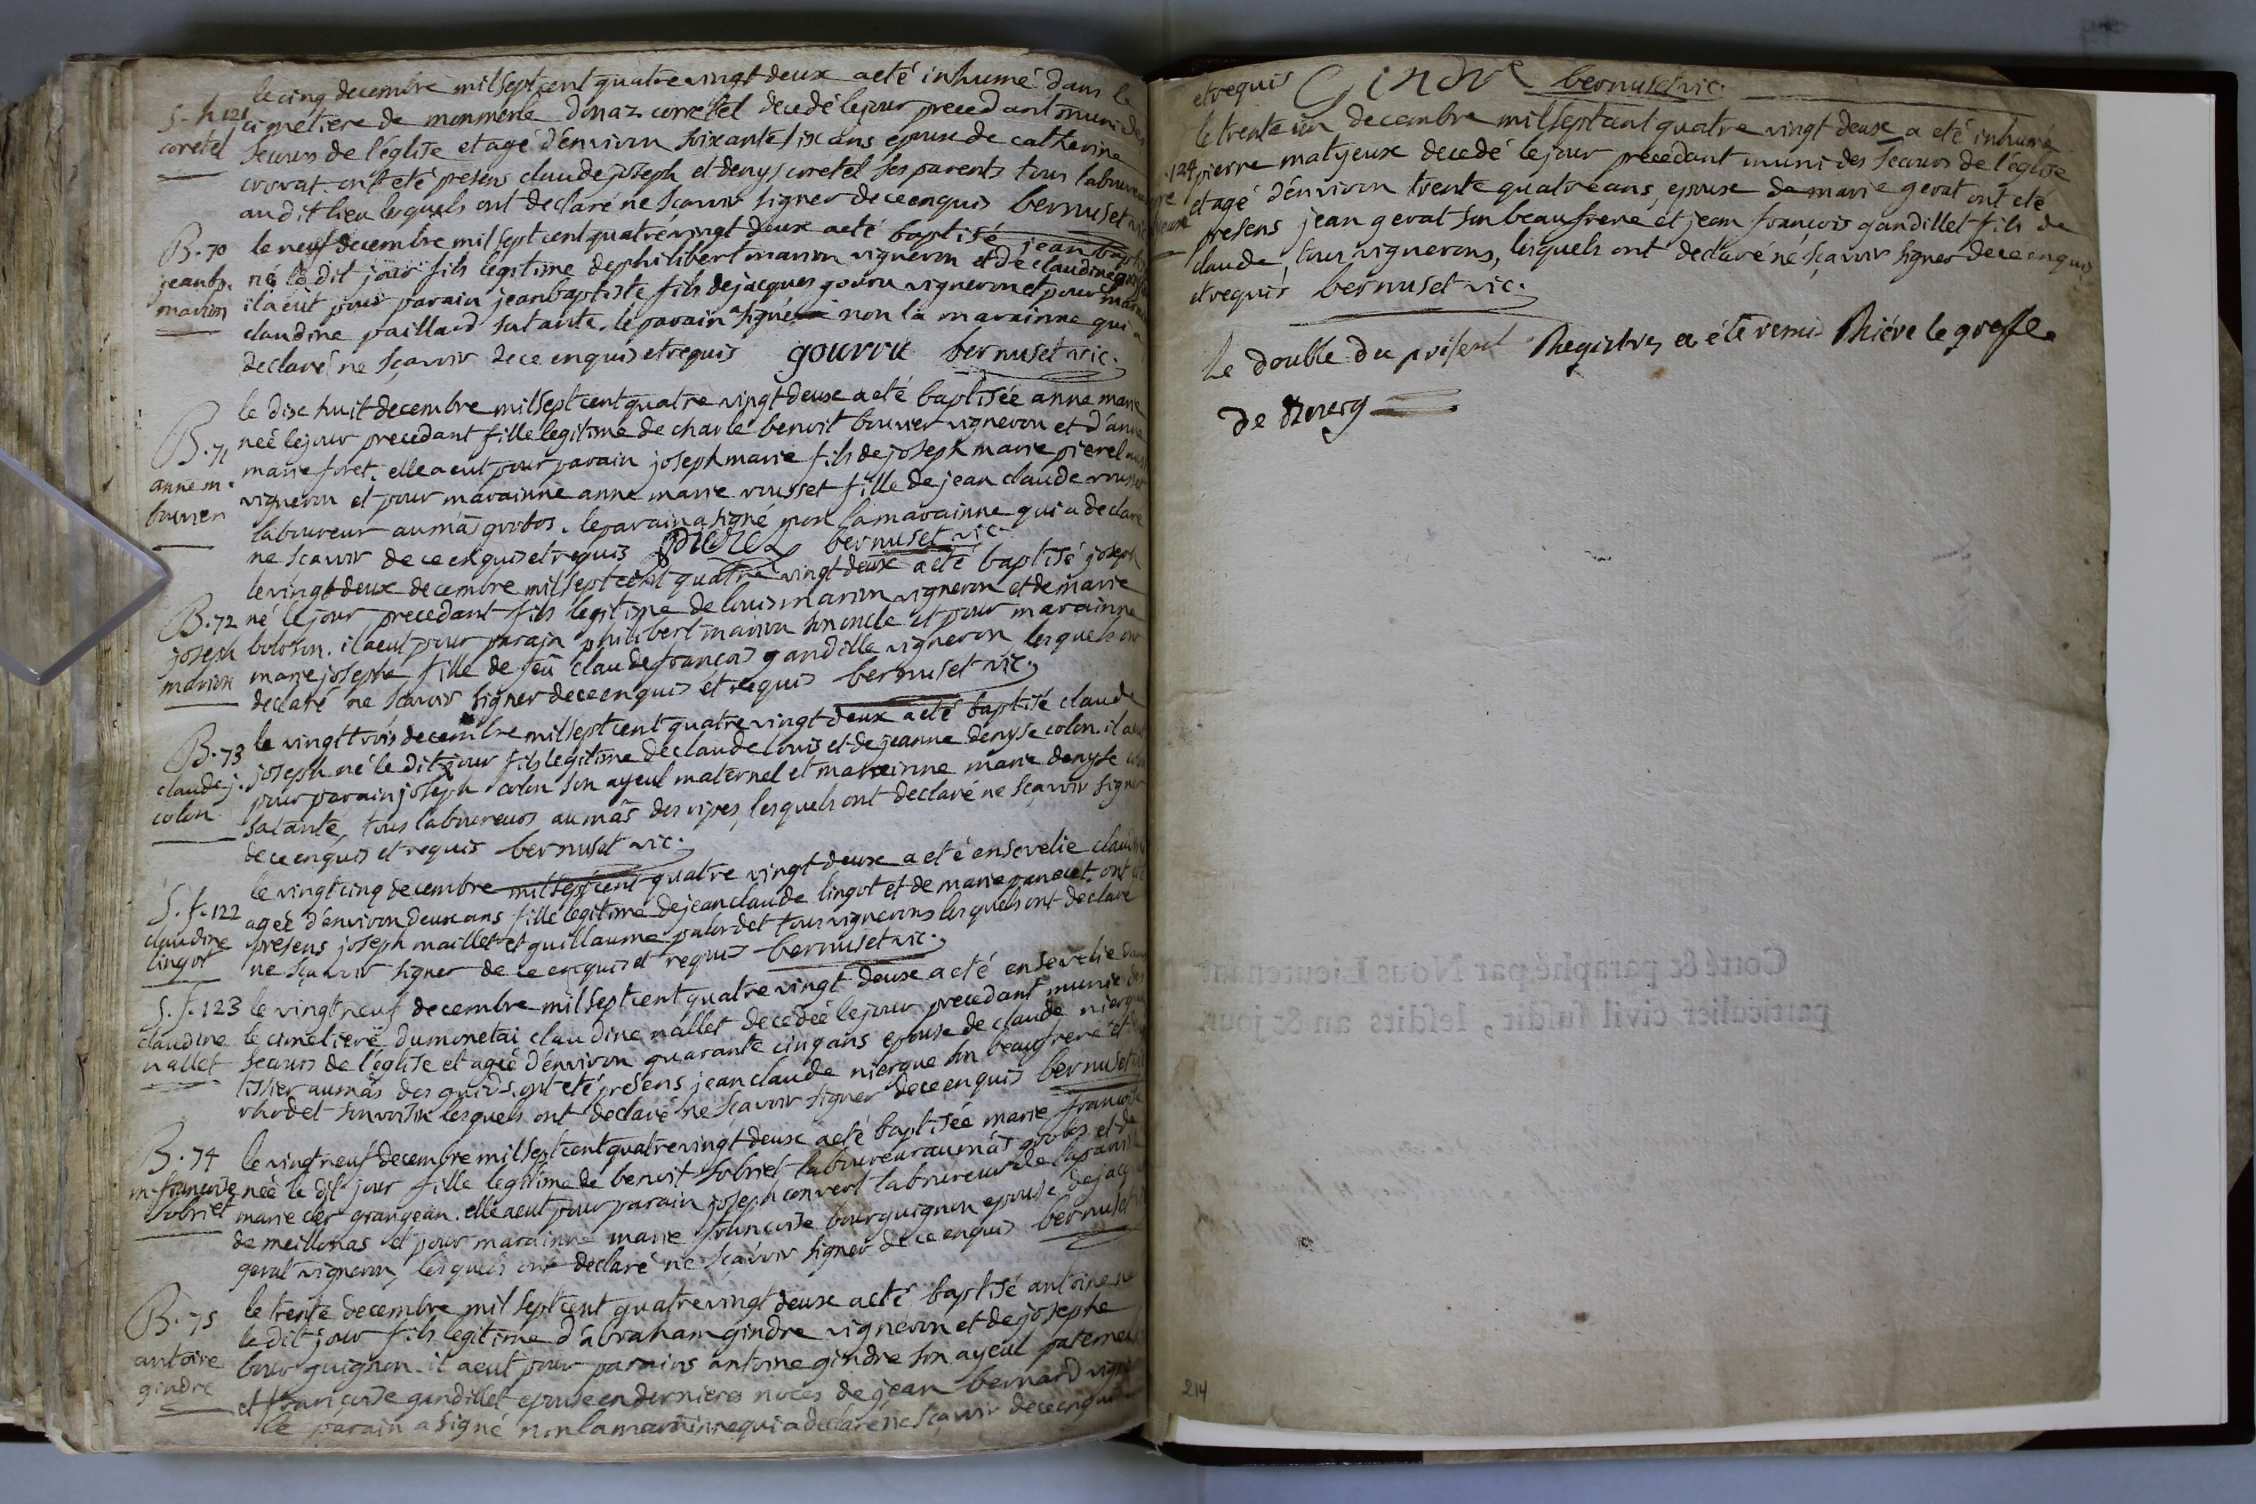 le cinq decembre mil sept cent quatre vingt deux a eté inhumé dans le
S. h 121 cimetiere de monmerle donaz corretel decedé le jour precedant muni des
coretel secours de l'église et agé d'environ soixante six ans epoux de catherine
crovat. ont eté présens claude joseph et denys coretel ses parents tous laboureurs
au dit lieu lesquels ont declaré ne sçavoir signer de ce enquis bernuset vic
B. 70 le neuf decembre mil sept cent quatre vingt deux a eté baptisé jean baptiste
jean b. né le dit jour fils legitime de philibert marion vigneron et de claudine
marion il a eut pour parain jean baptiste fils de jacques gouru vigneron et pour
claudine paillard sa tante. le parain a signé non la marainne qui a
declaré ne sçavoir de ce enquis et requis gourru bernuset vic.
le dix huit decembre mil sept cent quatre vingt deux a eté baptisée anne marie
B. 71 neé le jour precedant fille legitime de charle benoit bouvier vigneron et d'anne
marie foret. elle a eut pour parain joseph marie fils de joseph marie pierel
anne m. vigneron et pour marainne anne marie rousset fille de jean claude rousset
bouvier laboureur au mas grobos. le parain a signé non la marainne qui a declaré
ne scavoir de ce enquis et requis pierel bernuset vic.
le vingt deux decembre mil sept cent quatre vingt deux a eté baptisé joseph
B. 72 né le jour precedant fils legitime de louis marion vigneron et de marie
joseph boloson. il a eut pour parain philibert marion son oncle et pour marainne
marion marie josephe fille de feu claude françois gandille vigneron lesquels ont
declaré ne scavoir signer de ce enquis et requis bernuset vic.
B. 73 le vingt trois decembre mil sept cent quatre vingt deux a eté baptisé claude
claude j. joseph né le dit jour fils legitime de claude louis et de jeanne denyse colon. il a eut
colon pour parain joseph colon son ayeul maternel et marainne marie denyse
sa tante, tous laboureurs au mas des vipes, lesquels ont declaré ne sçavoir signer
de ce enquis et requis bernuset vic.
le vingt cinq decembre mil sept cent quatre vingt deux a eté ensevelie claudine
S. f. 122 ageé d'environ deux ans fille legitime de jean claude lingot et de marie panecet. ont eté
claudine présens joseph maillet et guillaume palordet tous vignerons lesquels ont declaré
lingot ne sçavoir signer de ce enquis et requis bernuset vic.
S. f. 123 le vingt neuf decembre mil sept cent quatre vingt deux a eté ensevelie dans
claudine le cimetiere du monetai claudine nallet decedeé le jour precedant munie des
nallet secours de l'église et ageé d'environ quarante cinq ans epouse de claude niergue
tissier au mas des guids. ont eté présens jean claude niergue son beaufrere et
rhodet son voisin lesquels ont declaré ne sçavoir signer de ce enquis bernuset vic
B. 74 le vingt neuf decembre mil sept cent quatre vingt deux a eté baptisée marie françoise
m. françoise neé le dit jour fille legitime de benoit sobriet laboureur au mas grobos et de
sobriet marie cler grangean. elle a eut pour parain joseph convert laboureur de la paroisse
de meillonas et pour marainne marie françoise bourguignon epouse de jacques
gerat vigneron, lesquels ont declaré ne sçavoir signer de ce enquis bernuset
B. 75 le trente decembre mil sept cent quatre vingt deux a eté baptisé antoine né
le dit jour fils legitime d'abraham gindre vigneron et de josephe
antoine bourguignon. il a eut pour parains antoine gindre son ayeul paternel
gindre et françoise gandillet epouse en dernieres noces de jean bernard
le parain a signé non la marainne qui a declaré ne sçavoir de ce enquis
et requis Gindre bernuset vic.
le trente un decembre mil sept cent quatre vingt deux a eté inhumé
124 pierre matyeux decedé le jour precedant muni des secours de l'église
et agé d'environ trente quatre ans, epoux de marie gerat ont eté
présens jean gerat son beaufrere et jean françois gandillet fils de
claude, tous vignerons, lesquels ont declaré ne sçavoir signer de ce enquis
et requis bernuset vic.
Le double du présent Registres a été remis Riére le greffe
de Bourg
Cotté & paraphé par Nous Lieutenant
particulier civil susdit, lesdits an & jour,
214